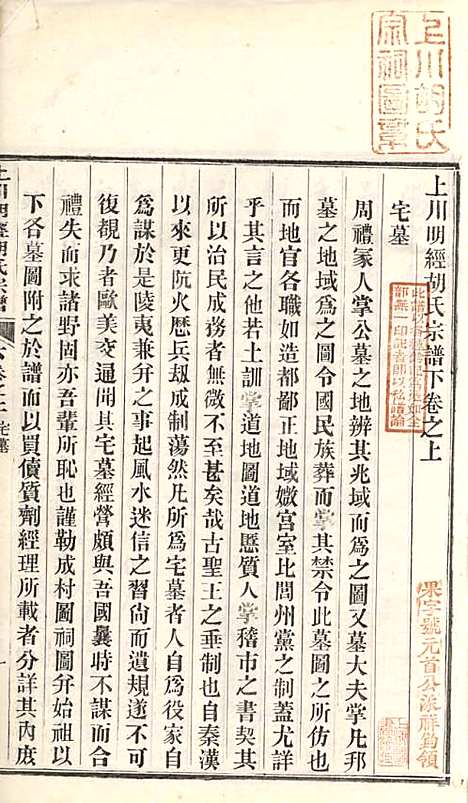 上川胡氏
宗祠圖章
上川明經胡氏宗譜下卷之上
宅墓
周禮冢人掌公墓之地辨其兆域而爲之圖又墓大夫掌凡邦
墓之地域爲之圖令國民族葬而掌其禁令此墓圖之所仿也
而地官各職如造都鄙正地域媺宫室比閭州黨之制蓋尤詳
乎其言之若土訓掌道地圖道地慝質人掌稽市之書契其
所以治民成務者無微不至甚矣哉古聖王之垂制也自秦漢
以來更阬火歷兵刼成制蕩然凡所爲宅墓者人自爲役家自
爲謀於是陵夷兼幷之事起風水迷信之習尙而遺規遂不可
復覩乃者歐美交通聞其宅墓經營頗與吾國曩時不謀而合
禮失而求諸野固亦吾輩所恥也謹勒成村圖祠圖幷始祖以
下各墓圖附之於譜而以買債質劑經理所載者分詳其內庶
上川明經胡氏宗譜
下卷之上 宅墓
一
此譜
部無一印記者卽以私譜論
果字號元首公派祥鈞領